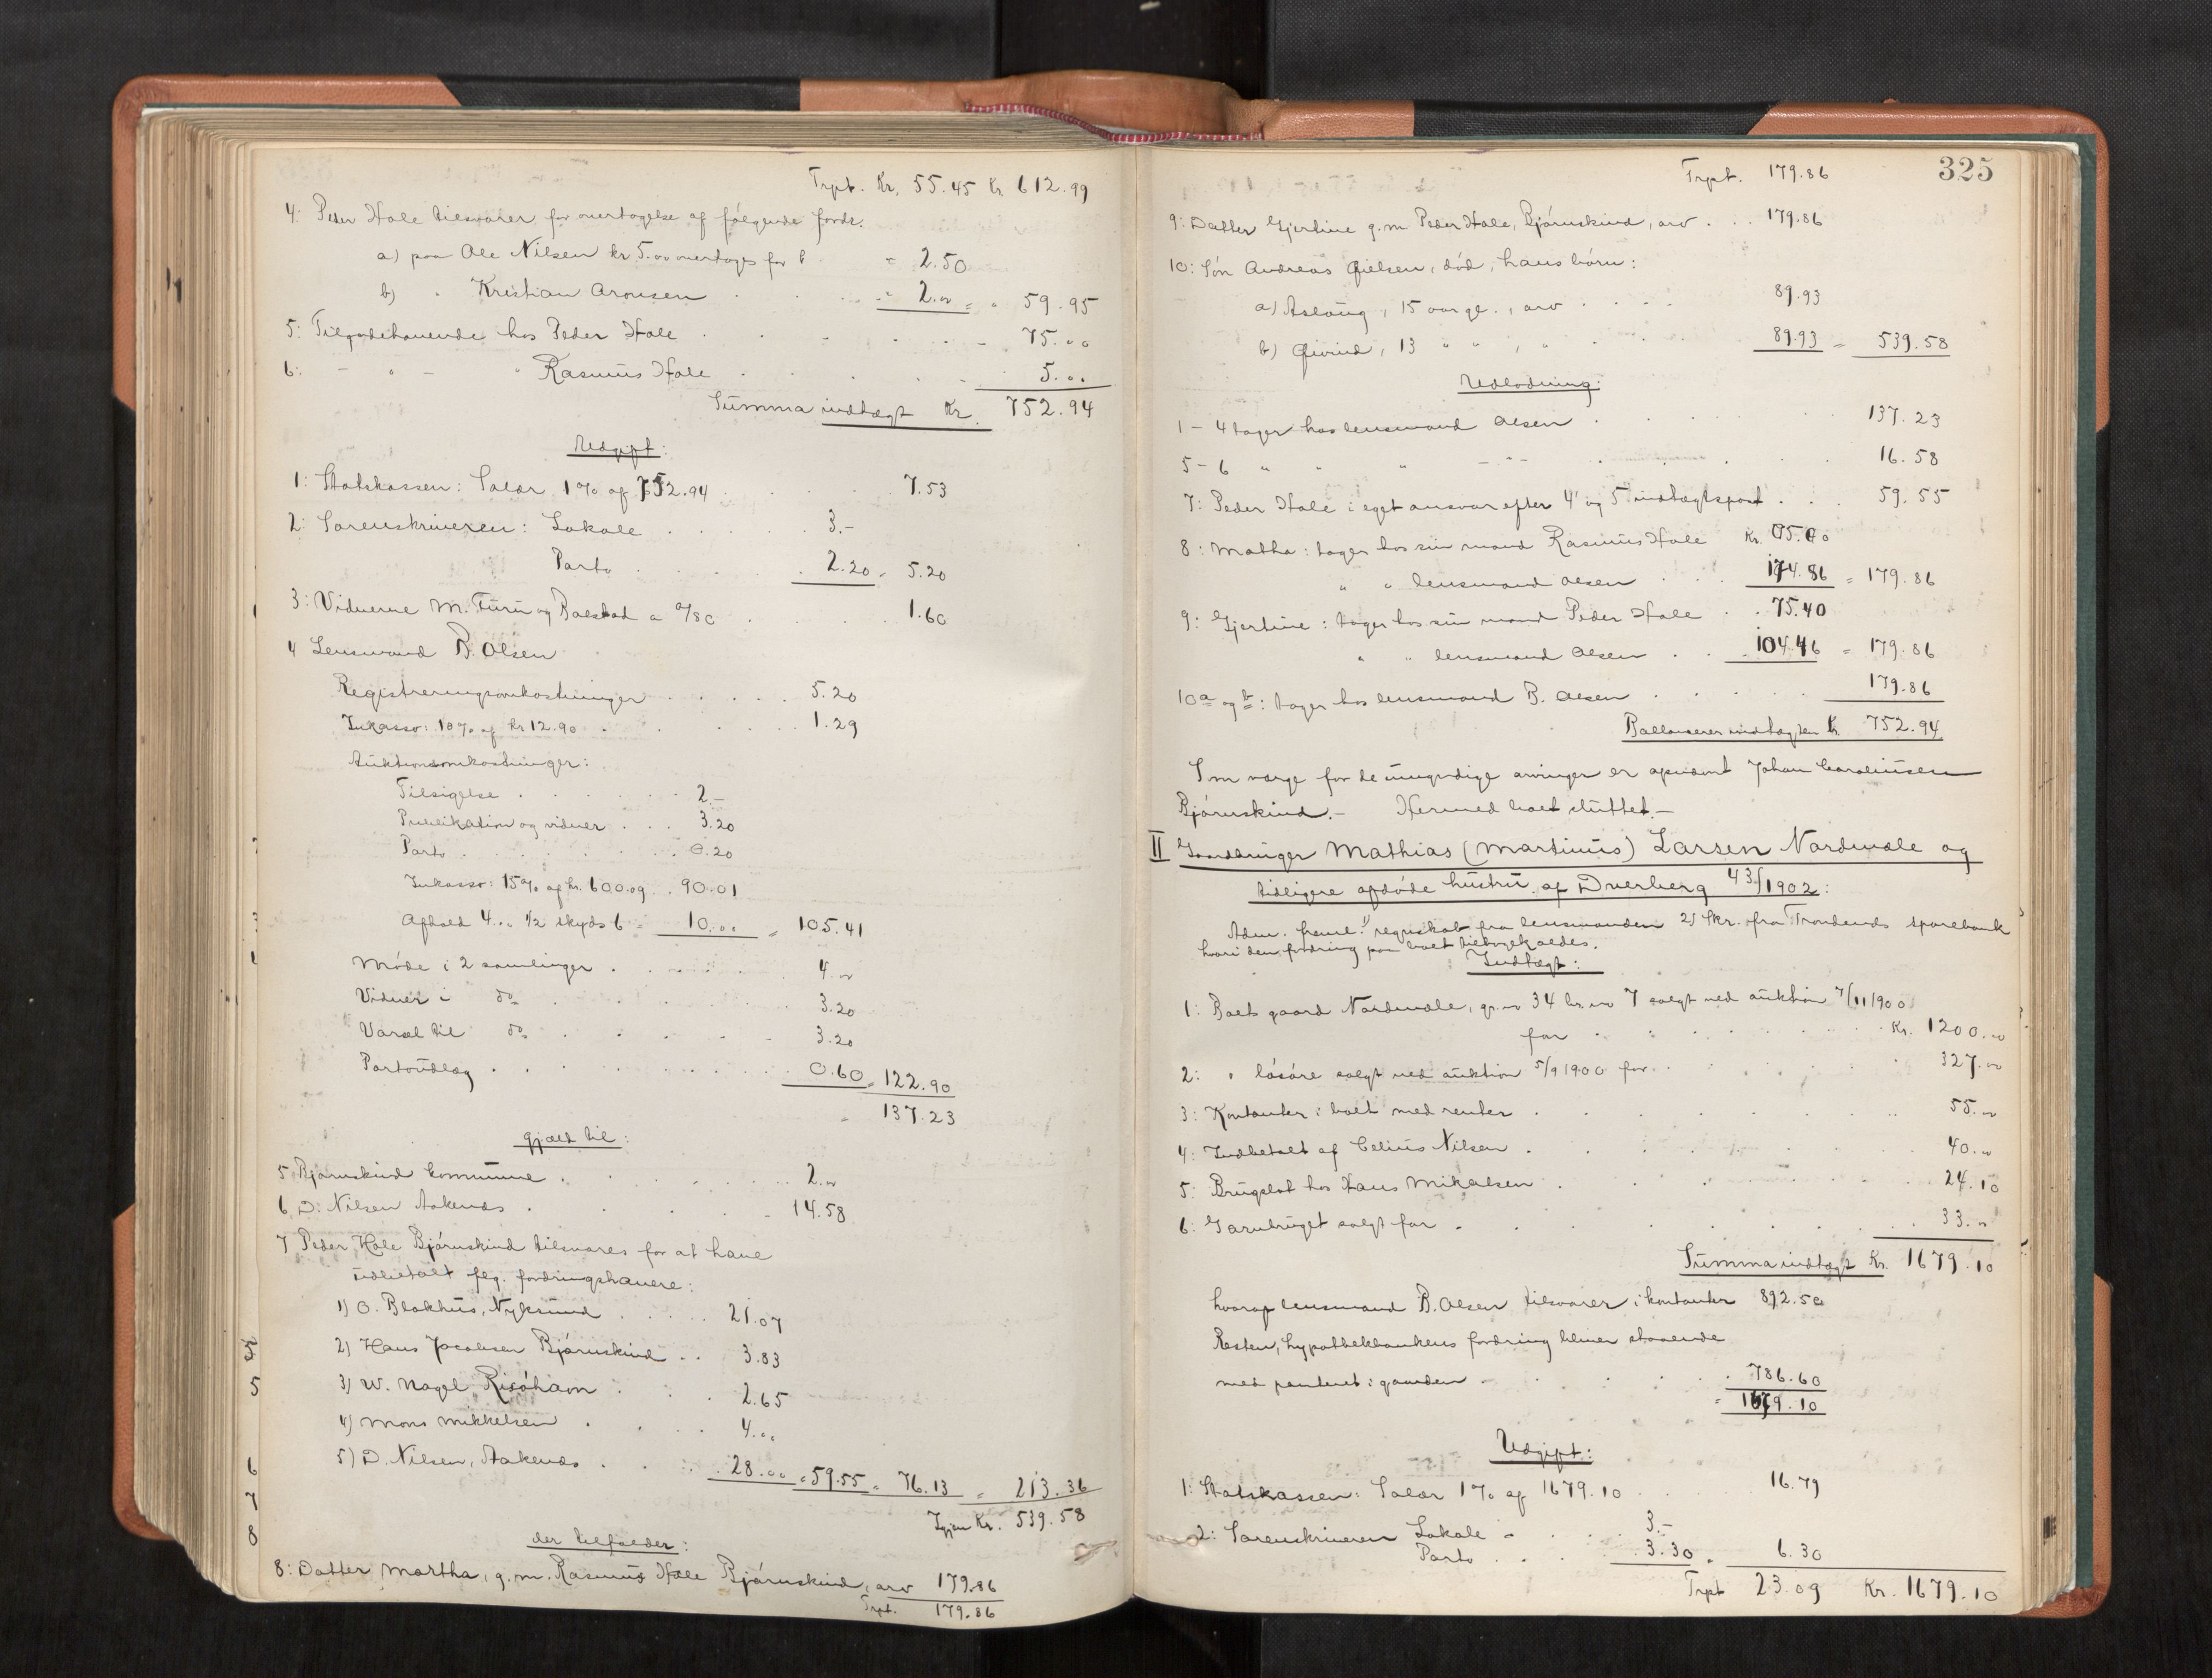 Trpt. Kr. 55.45 Kr. 612.99
4: Peder Hole tilsvarer for overtagelse af følgende fordr.
a) paa Ole Nilsen kr 5.00 overtages for " 2.50
b) " Kristian Aronsen " 2.00 = " 59.95
5: Tilgodehavende hos Peder Hole 75.00
6: - " - " Rasmus Hole 5.00
Summa indtægt Kr. 752.94
Udgift:
1: Statskassen: Salær 1% af 752.94 7.53
2: Sorenskriveren: Lokale 3.-
Porto 2.20 = 5.20
3: Vidnerne M. Furu og Balstad a 0/80 1.60
4 Lensmand B. Olsen
Registreringsomkostninger 5.20
Inkasso: 10% af kr 12.90 1.29
Auktionsomkostninger:
Tilsigelse 2.-
Publikation og vidner 3.20
Porto 0.20
Inkasso: 15% af kr. 600.09 90.01
Afhold 4.00 1/2 skyds 6 = 10.00 = 105.41
Møde i 2 samlinger 4.00
Vidner i do 3.20
Varsel til do 3.20
Portoudlæg 0.60 = 122.90
137.23
gjæld til:
5 Bjørnskind kommune 2.00
6 D: Nilsen Aakenes 14.58
7 Peder Hole Bjørnskind tilsvares for at have
udbetalt følg. fordringshavere:
1) O. Blokhus, Nyksund 21.07
2) Hans Jacobsen Bjørnskind 3.83
3) W. Nagel Risøhavn 2.65
4) Mons Mikkelsen 4.00
5) D. Nilsen, Aakenes 28.00 = 59.55 = 76.13 = 213.36
Igjen Kr. 539.58
der tilfalder:
8: Datter Martha, g.m. Rasmus Hole Bjørnskind, arv 179.86
Trpt. 179.86
325
Trpt. 179.86
9: Datter Gjertine g.m Peder Hole, Bjørnskind, arv 179.86
10: Søn Andreas Eielsen, død, hans børn:
a) Aslaug, 15 aar gl., arv 89.93
b) Eivind, 13 " " , " 89.93 = 539.58
Udlodning:
1 - 4 tager hos lensmand Olsen 137.23
5 - 6 " " " - " - 16.58
7: Peder Hole i eget ansvar efter 4' og 5' indtægtspost 59.55
8: Matha: tager hos sin mand Rasmus Hole Kr. 05.00
" " lensmand Olsen 174.86 = 179.86
9: Gjertine: tager hos sin mand Peder Hole 75.40
" " lensmand Olsen 104.46 = 179.86
10 a og b: tager hos lensmand B. Olsen 179.86
Ballanserer indtægten Kr. 752.94
Som værge for de umyndige arvinger er opnævnt Johan Caroliussen
Bjørnskind.- Hermed boet sluttet.-
II Gaardbruger Mathias (Martinus) Larsen Nordmæle og
tidligere afdøde hustru af Dverberg 43/1902:
Adm. freml. 1) regnskab fra lensmanden 2) Skr. fra Trondenes sparebank
hvori den fordring paa boet tilbagekaldes.
Indtægt:
1: Boets gaard Nordmæle, gr. no 34 br. no 7 solgt ved auktion 7/11 1900
for Kr. 1200.00
2: " løsøre solgt ved auktion 5/9 1900 for 327.00
3: Kontanter i boet med renter 55.00
4: Indbetalt af Celius Nilsen 40.00
5: Brugslot hos Hans Mikalsen 24.10
6: Garnbruget solgt for 33.00
Summa indtægt Kr. 1679.10
hvoraf lensmand B. Olsen tilsvarer i kontanter 892.50
Resten, hypothekbankens fordring bliver staaende
med panteret i gaarden 786.60
= 1679.10
Udgift:
1: Statskassen: Salær 1% af 1679.10 16.79
2: Sorenskriveren Lokale 3.-
Porto 3.30 = 6.30
Trpt 23.09 Kr. 1679.10